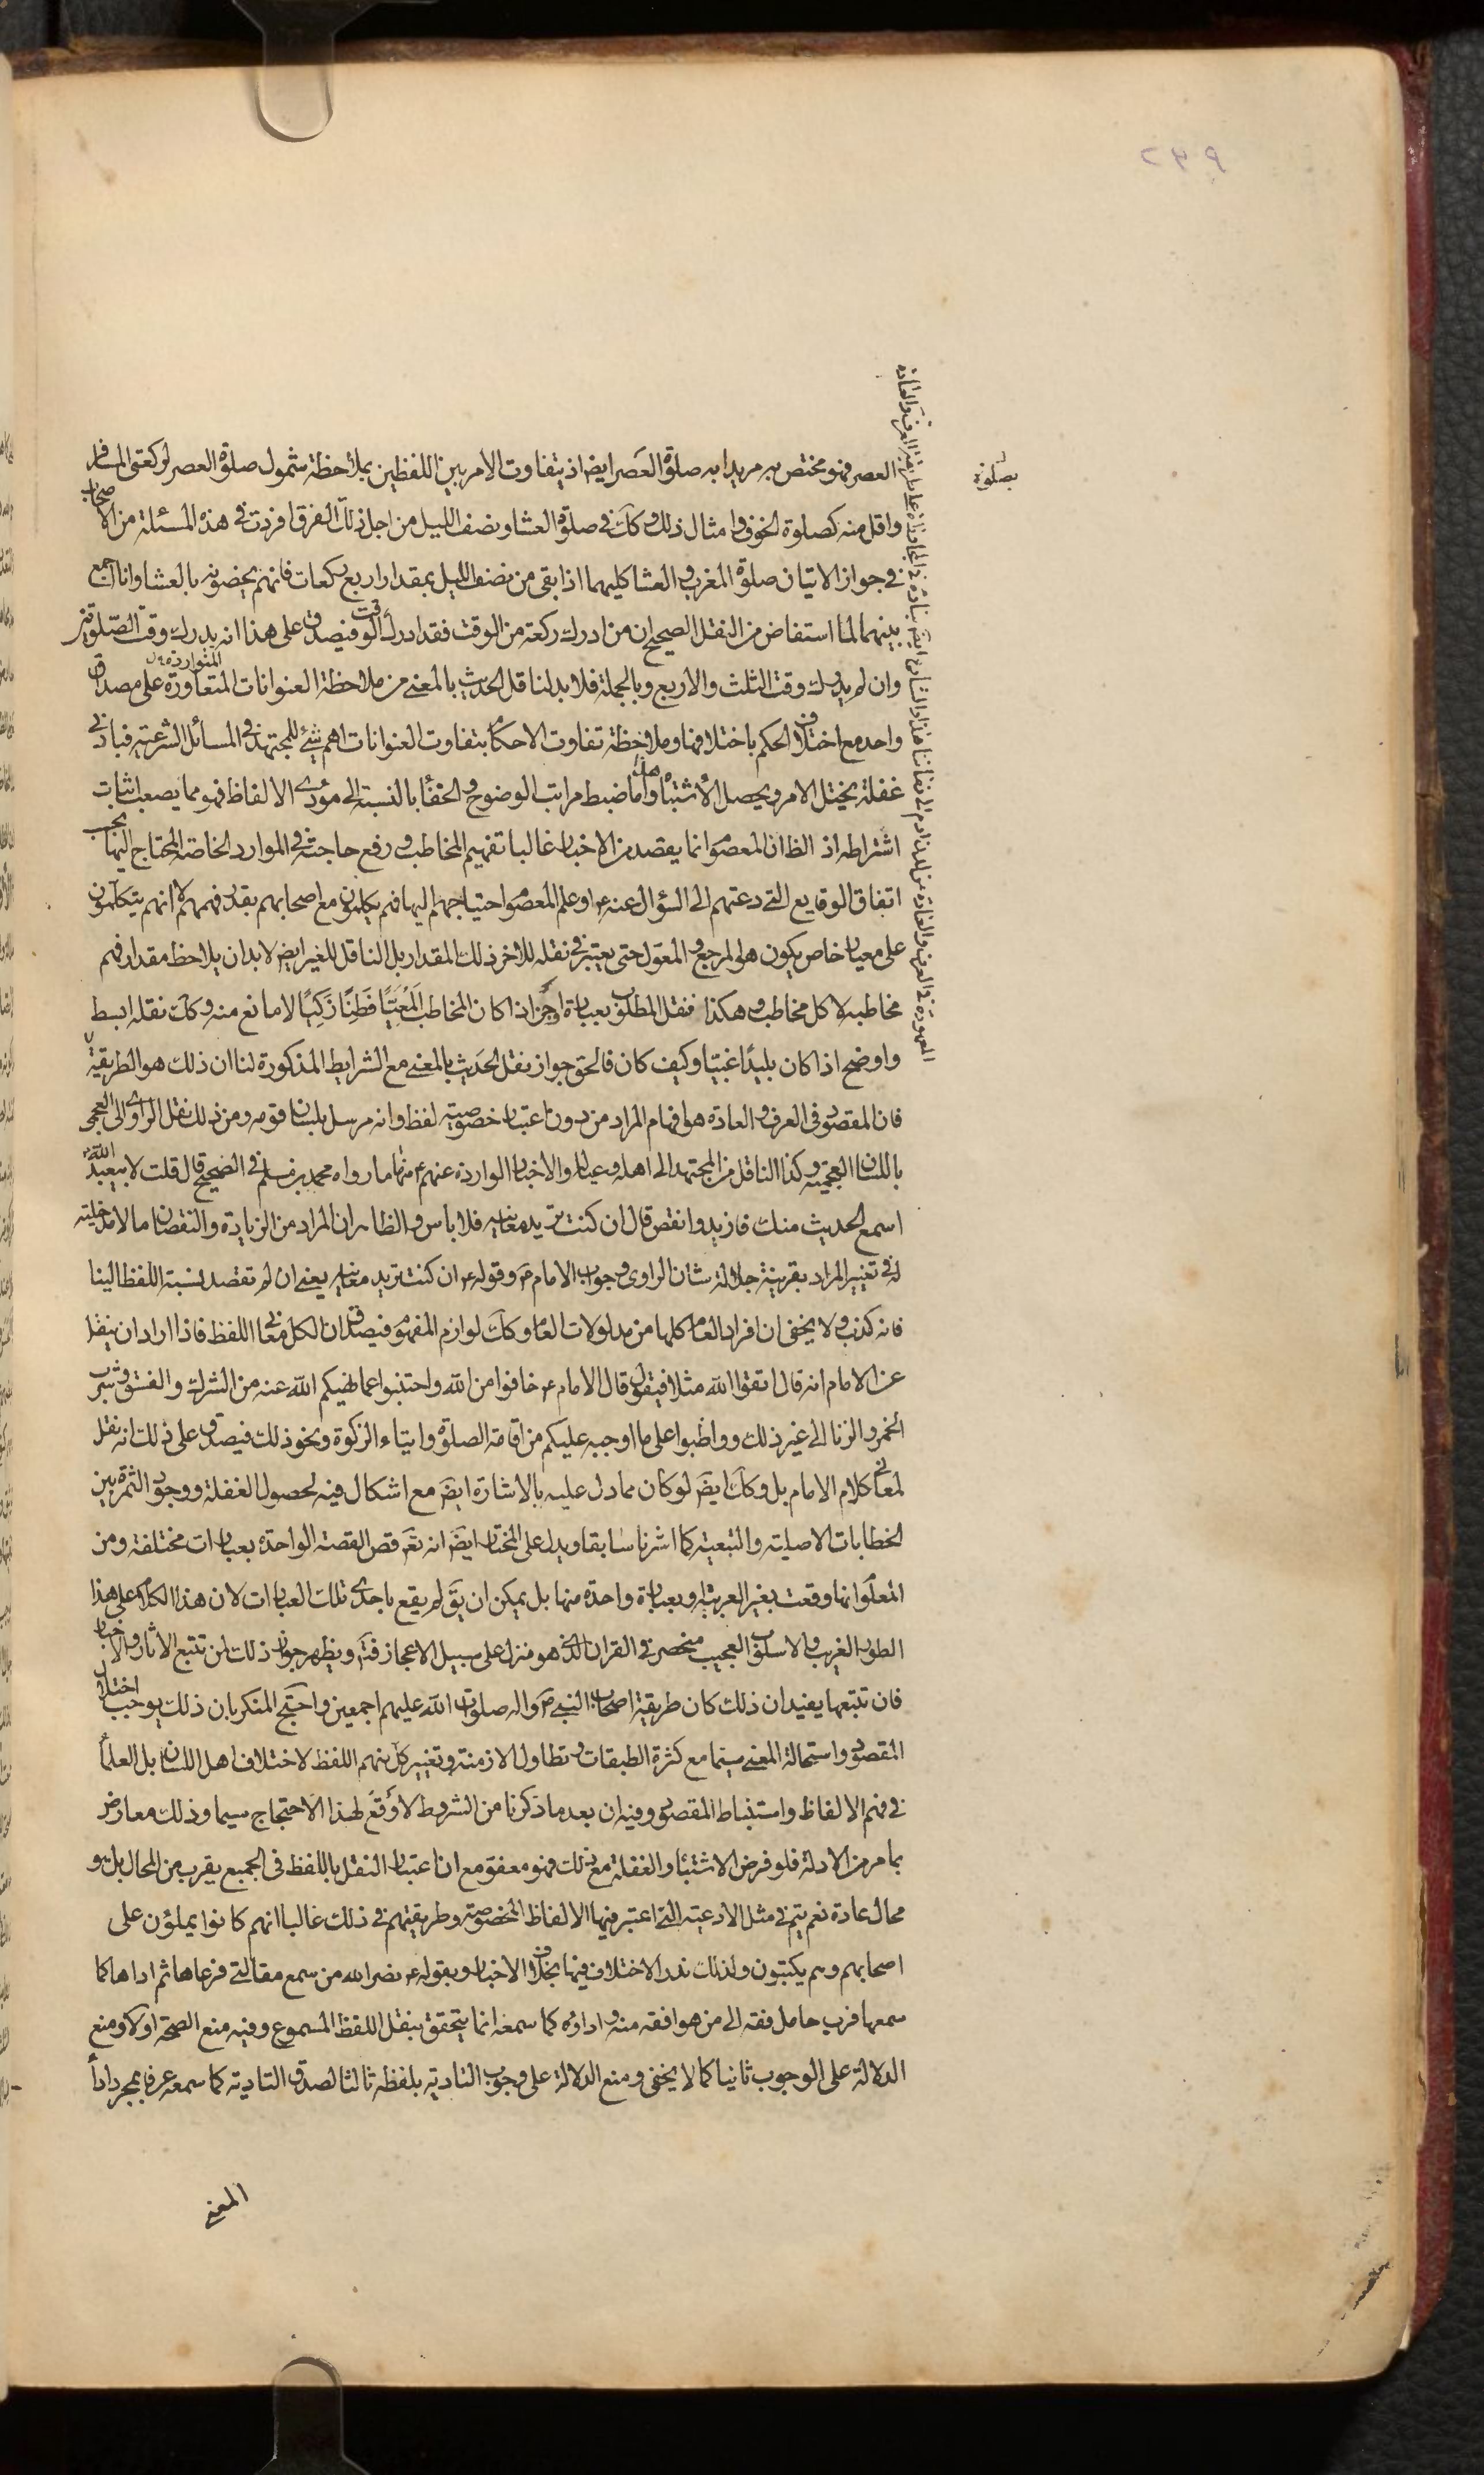 ٢٣٩
بصلوة
العصر فهو مختص به مريدا به صلوة العصر ايضا اذ يتفاوت الامر بين اللفظين بملاحظة شمول صلوة العصر لركعتي المسافر
واقل منه كصلوة الخوف وامثال ذلك وكك في صلوة العشا ونصف الليل من اجل ذلك الفرق افردت في هذه المسئلة من الاصحاب
في جواز الاتيان صلوة المغرب والعشا كليهما اذا بقى من نصف الليل بمقدار اربع ركعات فانهم يخصونه بالعشا وانا اجمع
بينهما لما استفاض من النقل الصحيح ان من ادرك ركعة من الوقت فقد ادرك الوقت فيصدق على هذا انه يدرك وقت الصلوتين
وان لم يدرك وقت الثلث والاربع وبالجملة فلا بد لناقل الحديث بالمعنى من ملاحظة العنوانات المتعاورة المتواردة على مصداق
واحد مع اختلاف الحكم باختلافها وملاحظة تفاوت الاحكام بتفاوت العنوانات اهم شئ للمجتهد في المسائل الشرعية فبادنى
غفلة يختل الامر ويحصل الاشتباه واما ضبط مراتب الوضوح والخفأ بالنسبة الى مؤدى الالفاظ فهو مما يصعب اثبات
اشتراطه اذ الظ ان المعصوم انما يقصد من الاخبار غالبا تفهيم المخاطب ورفع حاجته في الموارد الخاصة المحتاج اليها بحسب
اتفاق الوقايع التي دعتهم الى السؤال عنه ع او علم المعصوم احتياجهم اليها فهم يكلمون مع اصحابهم بقدر فهمهم لا انهم يتكلمون
على معيار خاص يكون هو المرجع والمعول حتى يعتبر في نقله للاخر ذلك المقدار بل الناقل للغير ايضا لابد ان يلاحظ مقدار فهم
مخاطبه لا كل مخاطب وهكذا فنقل المطلوب بعبارة اوجز اذا كان المخاطب المعيا فطنا زكيا لا مانع منه وكك نقله ابسط
واوضح اذا كان بليدا غبيا وكيف كان فالحق جواز نقل الحديث بالمعنى مع الشرايط المذكورة لنا ان ذلك هو الطريقة
المعهودة في العرف والعادة من لدن ادم الى زماننا هذا
فان المقصود في العرف والعادة هو افهام المراد من دون اعتبار خصوصية لفظ وانه مرسل بلسان قومه ومن ذلك نقل الراوى الى العجمى
باللسان العجمية وكذا الناقل من المجتهد الى اهله وعياله والاخبار الواردة عنهم ع منها ما رواه محمد بن مسلم في الصحيح قال قلت لابيعبد الله ع
اسمع الحديث منك فازيد وانقص قال ان كنت تريد معانيه فلا باس والظاهر ان المراد من الزيادة والنقصان ما لا مدخلية
له في تغيير المراد بقرينة جلالة شان الراوى وجواب الامام ع وقوله ع ان كنت تريد معانيه يعني ان لم تقصد نسبة اللفظ الينا
فانه كذب ولا يخفى ان افراد العام كلها من مدلولات العام وكك لوازم المفهوم فيصدق ان الكل معانى اللفظ فاذا اراد ان ينقل
عن الامام انه قال اتقوا الله مثلا فيقول قال الامام ع خافوا من الله واجتنبوا عما نهيكم الله عنه من الشرك والفسق وشرب
الخمر والزنا الى غير ذلك وواظبوا على ما اوجبه عليكم من اقامة الصلوة وايتاء الزكوة ونحو ذلك فيصدق على ذلك انه نقل
لمعانى كلام الامام بل وكك ايضا لو كان مما دل عليه بالاشارة ايضا مع اشكال فيه لحصول الغفلة ووجود الثمرة بين
الخطابات الاصلية والتبعية كما اشرنا سابقا ويدل على المختار ايضا انه تع قص القصة الواحدة بعبارات مختلفة ومن
المعلوم انها وقعت بغير العربية او بعبارة واحدة منها بل يمكن ان يق لم يقع باحدى تلك العبارات لان هذا الكلام على هذا
الطور الغريب والاسلوب العجيب منحصر في القران الذى هو منزل على سبيل الاعجاز فتأ ويظهر جواز ذلك لمن تتبع الاثار والاخبار
فان تتبعها يفيد ان ذلك كان طريقة اصحاب النبي ص واله صلوات الله عليهم اجمعين واحتج المنكر بان ذلك يوجب اختلال
المقصود واستحالة المعنى سيما مع كثرة الطبقات وتطاول الازمنة وتغيير كل منهم اللفظ لاختلاف اهل اللسان بل العلمأ
في فهم الالفاظ واستنباط المقصود وفيه ان بعد ما ذكرنا من الشروط لا وقع لهذا الاحتجاج سيما وذلك معارض
بما مر من الادلة فلو فرض الاشتباه والغفلة مع ذلك فهو معفو مع ان اعتبار النقل باللفظ في الجميع يقرب من المحال بل هو
محال عادة نعم يتم في مثل الادعية التي اعتبر فيها الالفاظ المخصوصة وطريقتهم في ذلك غالبا انهم كانوا يملؤن على
اصحابهم وهم يكتبون ولذلك ندر الاختلاف فيها بخلاف الاخبار وبقوله ع نضر الله من سمع مقالتي فرعاها ثم اداها كما
سمعها فرب حامل فقه الى من هو افقه منه واداؤه كما سمعه انما يتحقق بنقل اللفظ المسموع وفيه منع الصحة اولا ومنع
الدلالة على الوجوب ثانيا كما لا يخفى ومنع الدلالة على وجوب التادية بلفظه ثالثا لصدق التادية كما سمعه عرفا بمجرد ادأ
المعنى